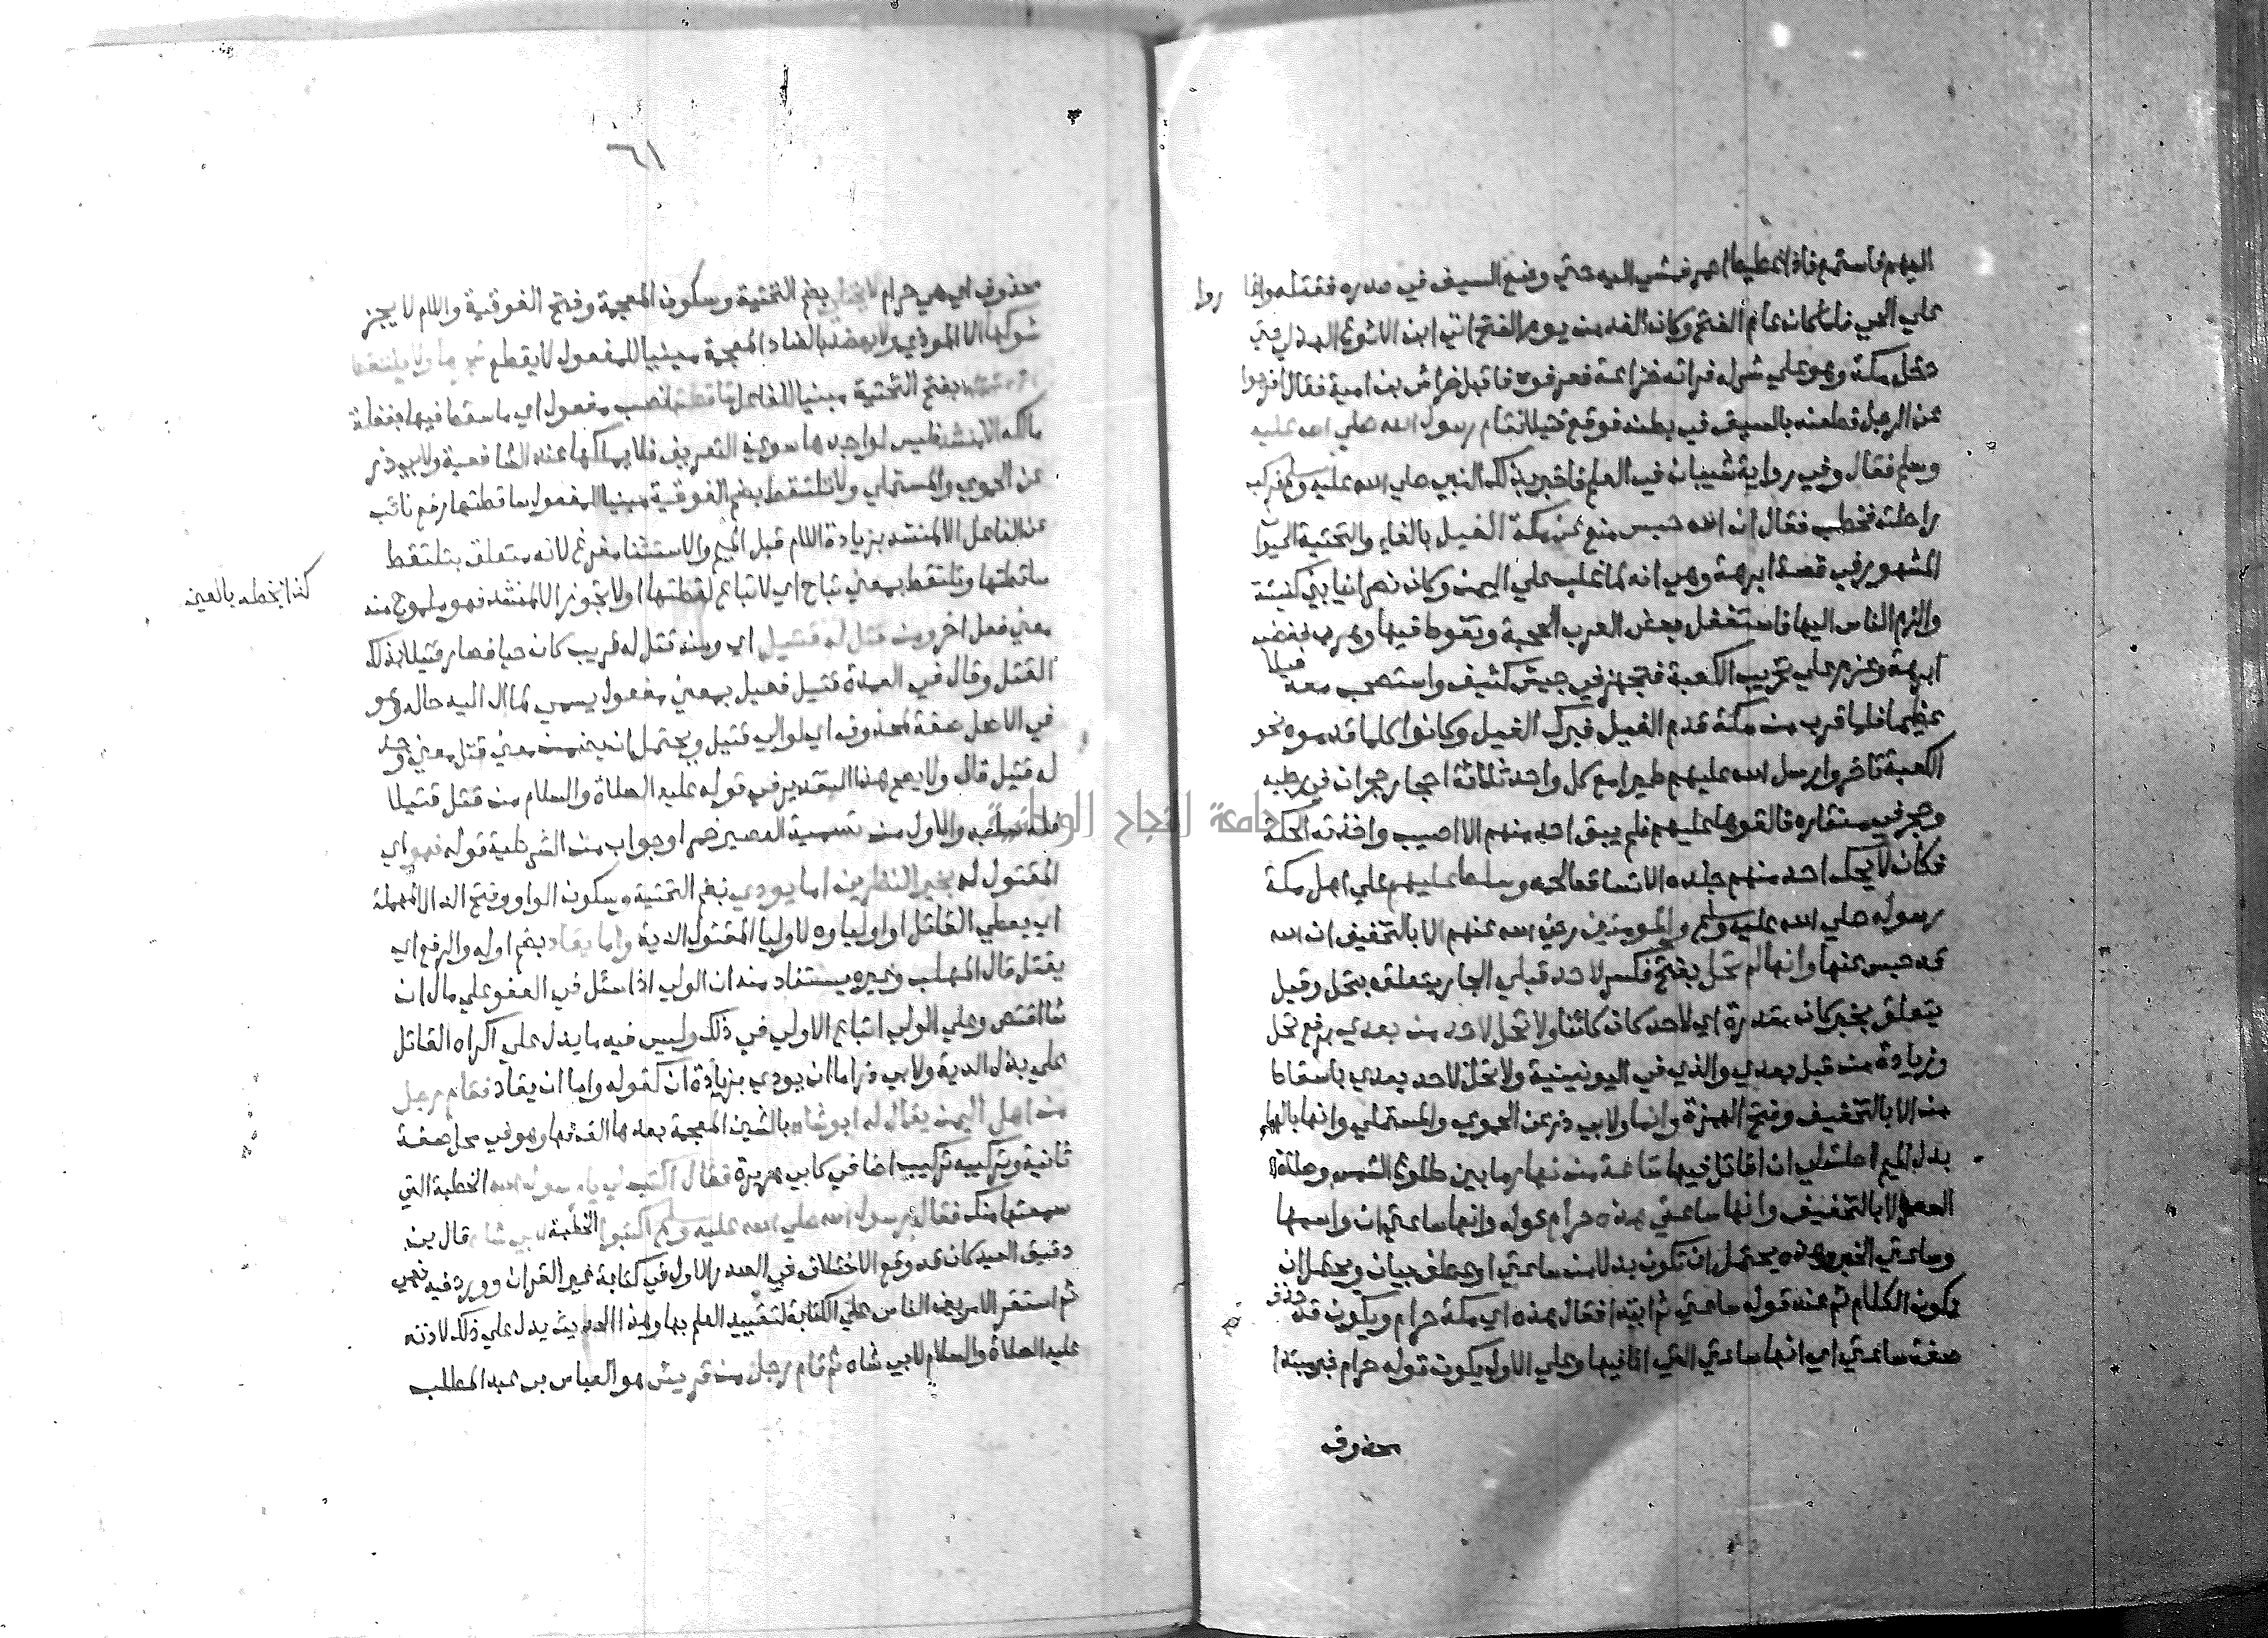 اليهم فاستمع فاذا غطيط احمر فمشى اليه حتي وضع السيف في صدره فقتله واغاروا
علي الحي فلما كان عام الفتح وكان الغد من يوم الفتح اتي ابن الاثوع الهذلي حتي
دخل مكة وهو علي شركه فراته خزاعة فعرفوه فاقبل خراش بن امية فقال افرجوا
عن الرجل فطعنه بالسيف في بطنه فوقع قتيلا فقام رسول الله صلي الله عليه
وسلم فقال وفي رواية شيبان في العلم فاخبر بذلك النبي صلي الله عليه وسلم فركب
راحلته فخطب فقال ان الله حبس منع عن مكة الفيل بالفاء والتحتية الحيوان
المشهور في قصة ابرهة وهي انه لما غلب علي اليمن وكان نصرانيا بني كنيسة
والزم الناس اليها فاستغفل بعض العرب الحجبة وتغوط فيها وهرب فغضب
ابرهة وعزم علي تخريب الكعبة فتجهز في جيش كثيف واستصحب معه فيلا
عظيما فلما قرب من مكة قدم الفيل فبرك الفيل وكانوا كلما قدموه نحو
الكعبة تاخر وارسل الله عليهم طيرا مع كل واحد ثلاثة احجار حجران في رجليه
وحجر في منقاره فالقوها عليهم فلم يبق احد منهم الا اصيب واخذته الحكة
فكان لا يحك احد منهم جلده الا تساقط لحمه وسلط عليهم علي اهل مكة
رسوله صلي الله عليه وسلم والمومنين رضي الله عنهم الا بالتخفيف ان الله
قد حبس عنها وانها لم تحل بفتح فكسر لاحد قبلي الجار يتعلق بتحل وقيل
يتعلق بخبر كان مقدرة اي لاحد كان كائنا ولا تحل لاحد من بعدي برفع تحل
وزيادة من قبل بعدي والذي في اليونينية ولا تحل لاحد بعدي باسقاط
من الا بالتخفيف وفتح الهمزة وانها ولابي ذر عن الحموي والمستملي وانها بالهاء
بدل الميم احلت لي ان اقاتل فيها ساعة من نهار ما بين طلوع الشمس وصلاة
العصر الا بالتخفيف وانها ساعتي هذه حرام قوله وانها ساعتي ان واسمها
وساعتي الخبر وهذه يحتمل ان تكون بدلا من ساعتي او عطف بيان ويحتمل ان
يكون الكلام تم عند قوله ساعتي ثم ابتدا فقال هذه اي مكة حرام ويكون قد حذف
صفة ساعتي اي انها ساعتي التي انا فيها وعلي الاول يكون قوله حرام خبر مبتدا
محذوف
٦١
محذوف اي هي حرام لا يختلي بضم التحتية وسكون المعجمة وفتح الفوقية واللام لا يجز
شوكها الا الموذي ولا يعضد بالضاد المعجمة مبنيا للمفعول لا يقطع شجرها ولا يلتقط
بفتح التحتية مبنيا للفاعل ساقطتها نصب مفعول اي ما سقط فيها بغفلة
مالكه الا منشد فليس لواجدها سوي التعريف فلا يملكها عند الشافعية ولابي ذر
عن الحموي والمستملي ولا تلتقط بضم الفوقية مبنيا للمفعول ساقطتها رفع نائب
عن الفاعل الا لمنشد بزيادة اللام قبل الميم والاستثنا مفرغ لانه متعلق بتلتقط
ساقطتها وتلتقط بمعني تباح اي لا تباع لقطتها او لا تجوز الا لمنشد فهو ملموح منه
كذا بخطه بالعين
معني فعل اخر ومن قتل له قتيل اي ومن قتل له قريب كان حيا فصار قتيلا بذلك
القتل وقال في العمدة قتيل فعيل بمعني مفعول يسمي بما ال اليه حاله وهو
في الاصل صفة لمحذوف اي لولي قتيل ويحتمل ان يضمن قتل معني وجد
له قتيل قال ولا يصح هذا التقدير في قوله عليه الصلاة والسلام من قتل قتيلا
فله سلبه والاول من تسمية العصير خمرا وجواب من الشرطية قوله فهو اي
المقتول له بخير النظرين اما يودي بضم التحتية وسكون الواو وفتح الدال المهملة
اي يعطي القاتل او اولياوه لاوليا المقتول الدية واما يقاد بضم اوله والرفع اي
يقتل قال المهلب وغيره يستفاد منه ان الولي اذا سئل في العفو علي مال ان
شا اقتص وعلي الولي اتباع الاولي في ذلك وليس فيه ما يدل علي اكراه القاتل
علي بذل الدية ولابي ذر اما ان يودي بزيادة ان كقوله واما ان يقاد فقام رجل
من اهل اليمن يقال له ابو شاه بالشين المعجمة بعدها الف فها وهو في محل صفة
ثانية وتركيبه تركيب اضافي كابي هريرة فقال اكتب لي يا رسول الله الخطبة التي
سمعتها منك فقال رسول الله صلي الله عليه وسلم اكتبوا الخطبة لابي شاه قال ابن
دقيق العيد كان قد وقع الاختلاف في الصدر الاول في كتابة غير القران وورد فيه نهي
ثم استقر الامر بين الناس علي الكتابة لتقييد العلم بها وهذا الحديث يدل علي ذلك لاذنه
عليه الصلاة والسلام لابي شاه ثم قام رجل من قريش هو العباس بن عبد المطلب
جامعة النجاح الوطنية